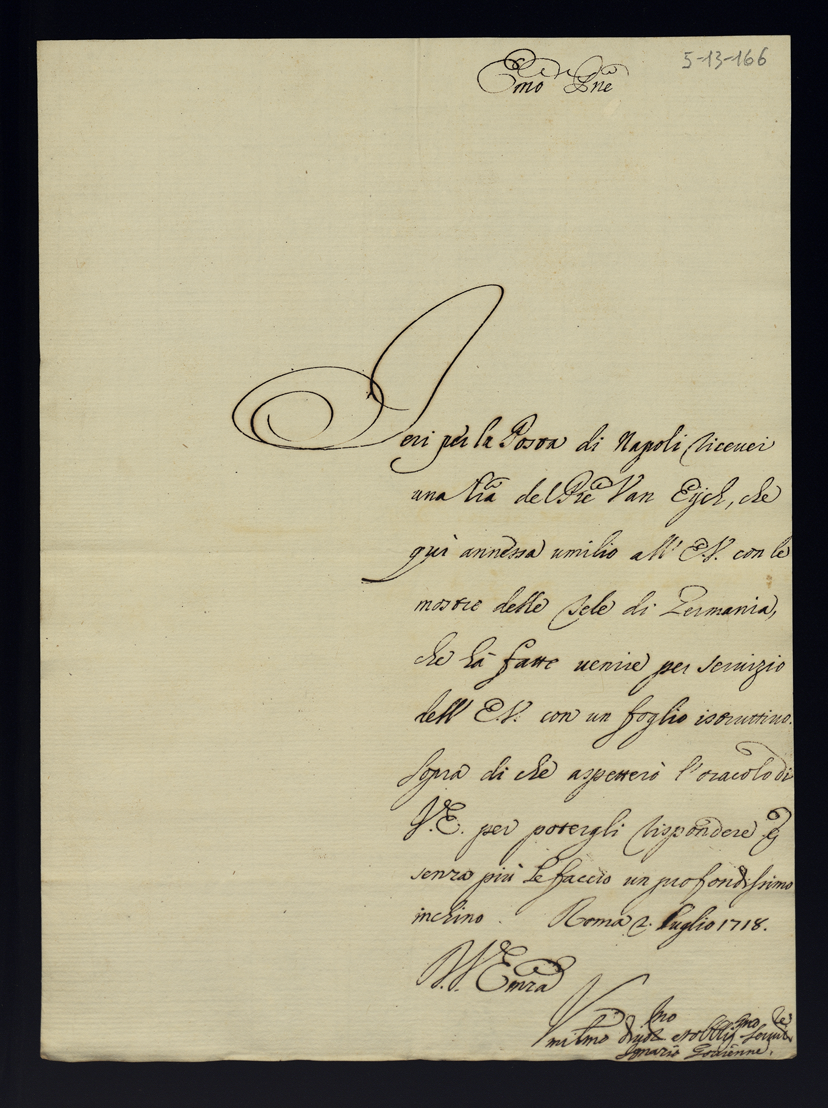 5-13-166
Emo Pne
Ieri per la Posta di Napoli ricevei
una Lra del Pre Van Eÿck, che
quì annessa umilio all' E.V. con le
mostre delle Tele di Germania,
che hà fatte venire per servizio
dell' E.V. con un foglio istruttivo.
Sopra di che aspetterò l'oracolo di
V.E. per potergli rispondere, e
senza più le faccio un profondissimo
inchino. Roma 2. Luglio 1718.
V. Emza
Umilmo
Ignazio